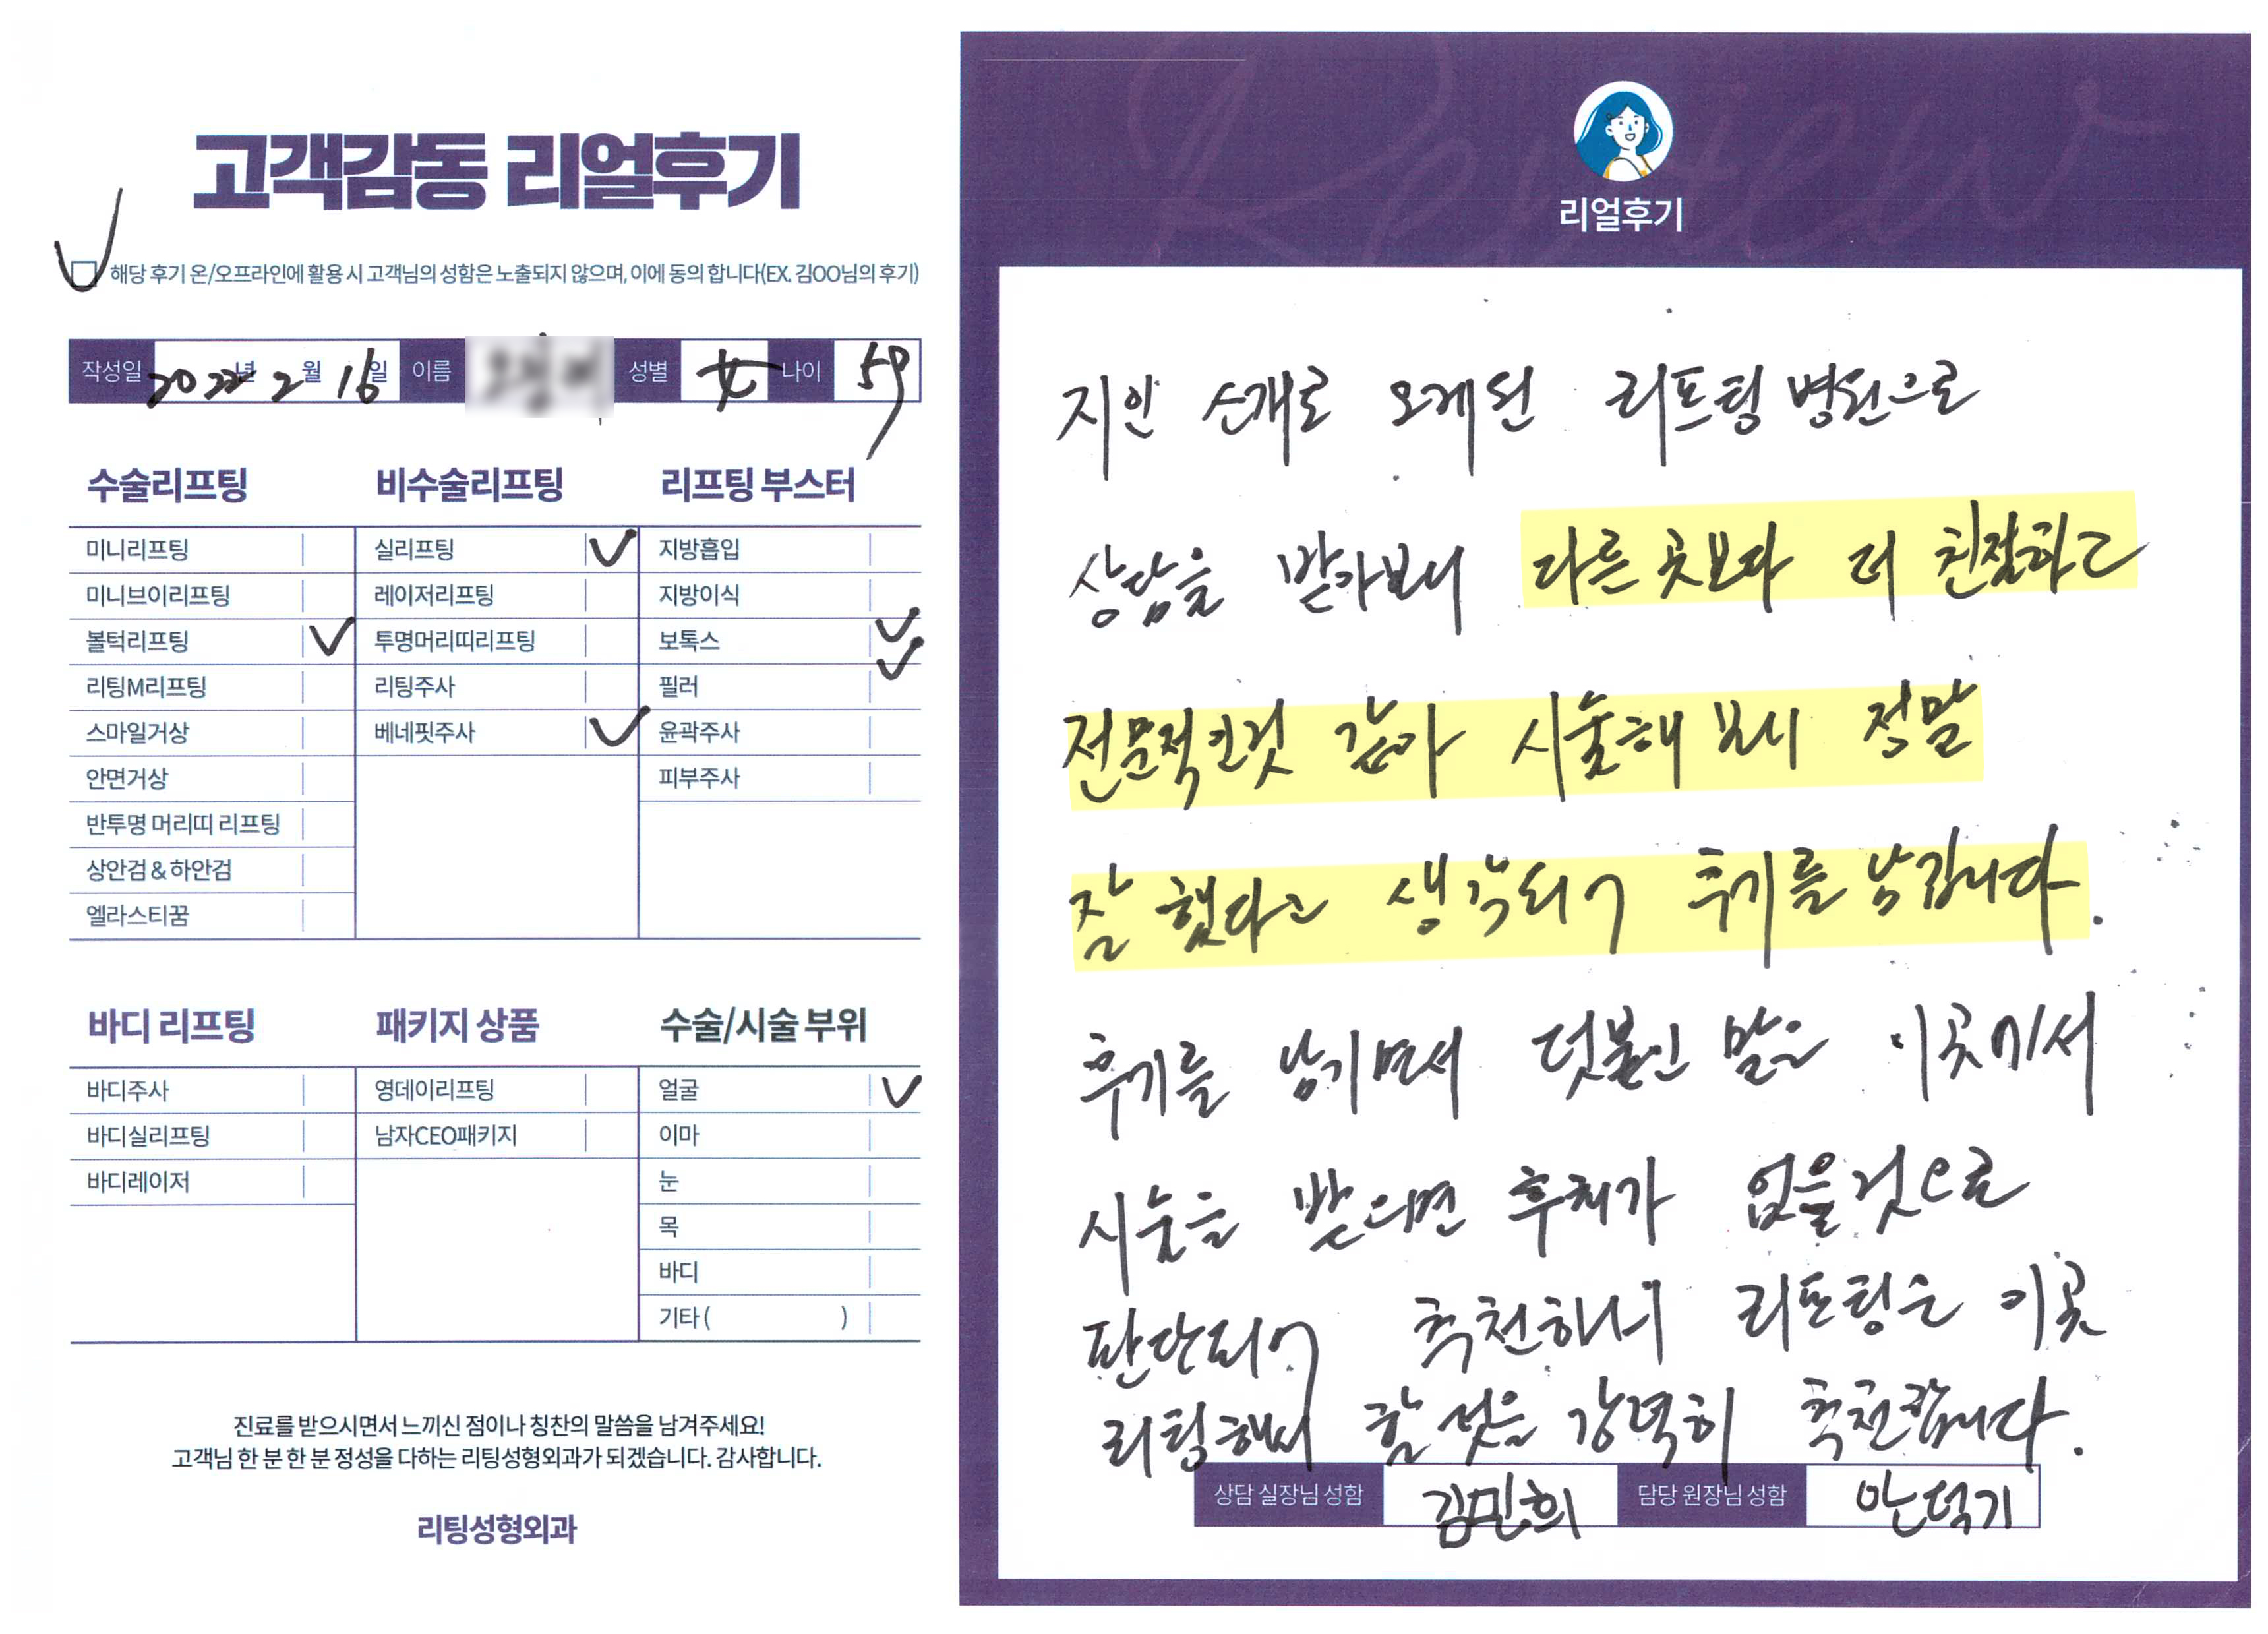 고객감동 리얼후기
해당 후기 온/오프라인에 활용 시 고객님의 성함은 노출되지 않으며, 이에 동의 합니다(EX. 김OO님의 후기)
작성일 2022년 2월 16일 이름 성별 女 나이 59
수술리프팅
미니리프팅
미니브이리프팅
볼턱리프팅 ✓
리팅M리프팅
스마일거상
안면거상
반투명 머리띠 리프팅
상안검 & 하안검
엘라스티꿈
비수술리프팅
실리프팅 ✓
레이저리프팅
투명머리띠리프팅
리팅주사
베네핏주사 ✓
리프팅 부스터
지방흡입
지방이식
보톡스 ✓
필러 ✓
윤곽주사
피부주사
바디 리프팅
바디주사
바디실리프팅
바디레이저
패키지 상품
영데이리프팅
남자CEO패키지
수술/시술 부위
얼굴 ✓
이마
눈
목
바디
기타 ( )
진료를 받으시면서 느끼신 점이나 칭찬의 말씀을 남겨주세요!
고객님 한 분 한 분 정성을 다하는 리팅성형외과가 되겠습니다. 감사합니다.
리팅성형외과
Review
리얼후기
지인 소개로 오게된 리프팅 병원으로
상담을 받아보니 다른 곳보다 더 친절하고
전문적인것 같아 시술해 보니 정말
잘 했다고 생각되어 후기를 남깁니다.
후기를 남기면서 덧붙인 말은 이곳에서
시술을 받으면 후회가 없을것으로
판단되어 추천하니 리프팅은 이곳
리팅에서 할 것을 강력히 추천합니다.
상담 실장님 성함 김민희 담당 원장님 성함 안덕기